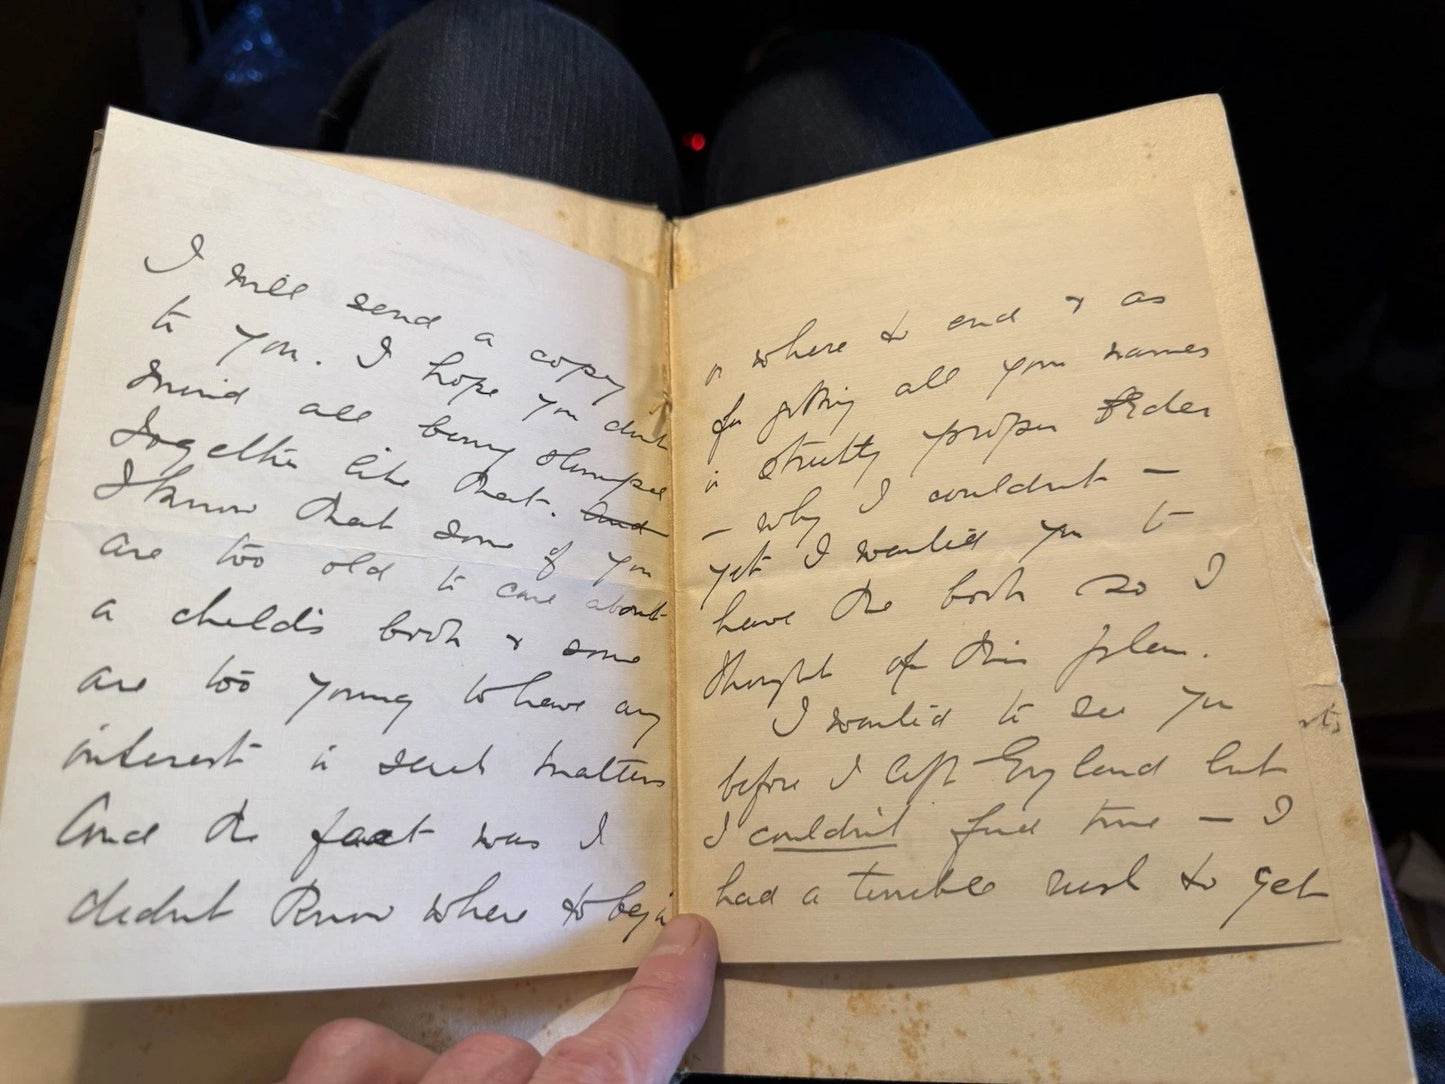 I will send a copy
to you. I hope you dont
mind all being slumped
together like that. And
I know that some of you
are too old to care about
a child's book & some
are too young to have any
interest in such matters
And the fact was I
didnt know where to begin
or where to end & as
for getting all your names
in strictly proper order
– why I couldnt –
yet I wanted you to
have the book so I
thought of this plan.
I wanted to see you
before I left England but
I couldnt find time – I
had a terrible rush to get